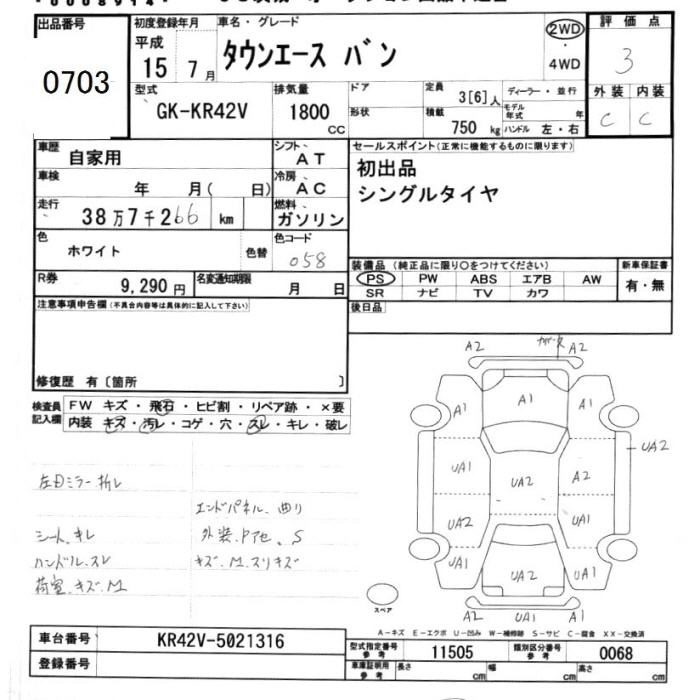 出品番号
0703
初度登録年月
平成
15 年 7 月
車名・グレード
タウンエース バン
2WD
・
4WD
評価点
3
外装 内装
C C
型式
GK-KR42V
排気量
1800
CC
ドア
形状
定員
3[6]人
積載
750 kg
ディーラー・並行
モデル年式 年
ハンドル 左・右
車歴
自家用
シフト
AT
車検
年 月( 日)
冷房
AC
走行
38万7千266 km
燃料
ガソリン
色
ホワイト
色替
色コード
058
R券
9,290 円
名変通知期限
月 日
セールスポイント(正常に機能するものに限ります)
初出品
シングルタイヤ
装備品 (純正品に限り○をつけてください)
新車保証書
PS PW ABS エアB AW
有・無
SR ナビ TV カワ
後日品
注意事項申告欄(不具合内容等は具体的に記入して下さい)
修復歴 有〔箇所 〕
検査員記入欄
FW キズ・飛石・ヒビ割・リペア跡・×要
内装 キズ・汚レ・コゲ・穴・スレ・キレ・破レ
左Dミラー折レ
エンドパネル、曲り
シート、キレ
外装、Pアセ、S
ハンドル、スレ
キズ、M、スリキズ
荷室、キズ、M
A2 A2
A1 A1 A1
UA2
UA1 UA2 A2
UA2 UA1
UA1 UA2 UA1
A2 UA1 A1
スペア
A-キズ E-エクボ U-凹み W-補修跡 S-サビ C-腐食 XX-交換済
車台番号
KR42V-5021316
登録番号
型式指定番号
参考
11505
類別区分番号
参考
0068
車庫証明用
参考
長さ cm
幅 cm
高さ cm